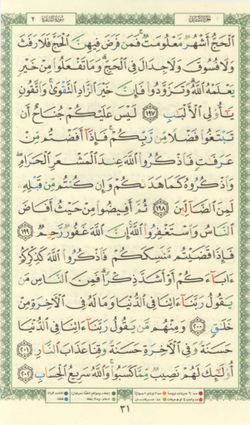 الْحَجُّ أَشْهُرٌ مَعْلُومَاتٌ فَمَنْ فَرَضَ فِيهِنَّ الْحَجَّ فَلَا رَفَثَ
وَلَا فُسُوقَ وَلَا جِدَالَ فِي الْحَجِّ وَمَا تَفْعَلُوا مِنْ خَيْرٍ
يَعْلَمْهُ اللَّهُ وَتَزَوَّدُوا فَإِنَّ خَيْرَ الزَّادِ التَّقْوَىٰ وَاتَّقُونِ
يَا أُولِي الْأَلْبَابِ ١٩٧ لَيْسَ عَلَيْكُمْ جُنَاحٌ أَنْ
تَبْتَغُوا فَضْلًا مِنْ رَبِّكُمْ فَإِذَا أَفَضْتُمْ مِنْ
عَرَفَاتٍ فَاذْكُرُوا اللَّهَ عِنْدَ الْمَشْعَرِ الْحَرَامِ
وَاذْكُرُوهُ كَمَا هَدَاكُمْ وَإِنْ كُنْتُمْ مِنْ قَبْلِهِ
لَمِنَ الضَّالِّينَ ١٩٨ ثُمَّ أَفِيضُوا مِنْ حَيْثُ أَفَاضَ
النَّاسُ وَاسْتَغْفِرُوا اللَّهَ إِنَّ اللَّهَ غَفُورٌ رَحِيمٌ ١٩٩
فَإِذَا قَضَيْتُمْ مَنَاسِكَكُمْ فَاذْكُرُوا اللَّهَ كَذِكْرِكُمْ
آبَاءَكُمْ أَوْ أَشَدَّ ذِكْرًا فَمِنَ النَّاسِ مَنْ
يَقُولُ رَبَّنَا آتِنَا فِي الدُّنْيَا وَمَا لَهُ فِي الْآخِرَةِ مِنْ
خَلَاقٍ ٢٠٠ وَمِنْهُمْ مَنْ يَقُولُ رَبَّنَا آتِنَا فِي الدُّنْيَا
حَسَنَةً وَفِي الْآخِرَةِ حَسَنَةً وَقِنَا عَذَابَ النَّارِ ٢٠١
أُولَٰئِكَ لَهُمْ نَصِيبٌ مِمَّا كَسَبُوا وَاللَّهُ سَرِيعُ الْحِسَابِ ٢٠٢
٣١